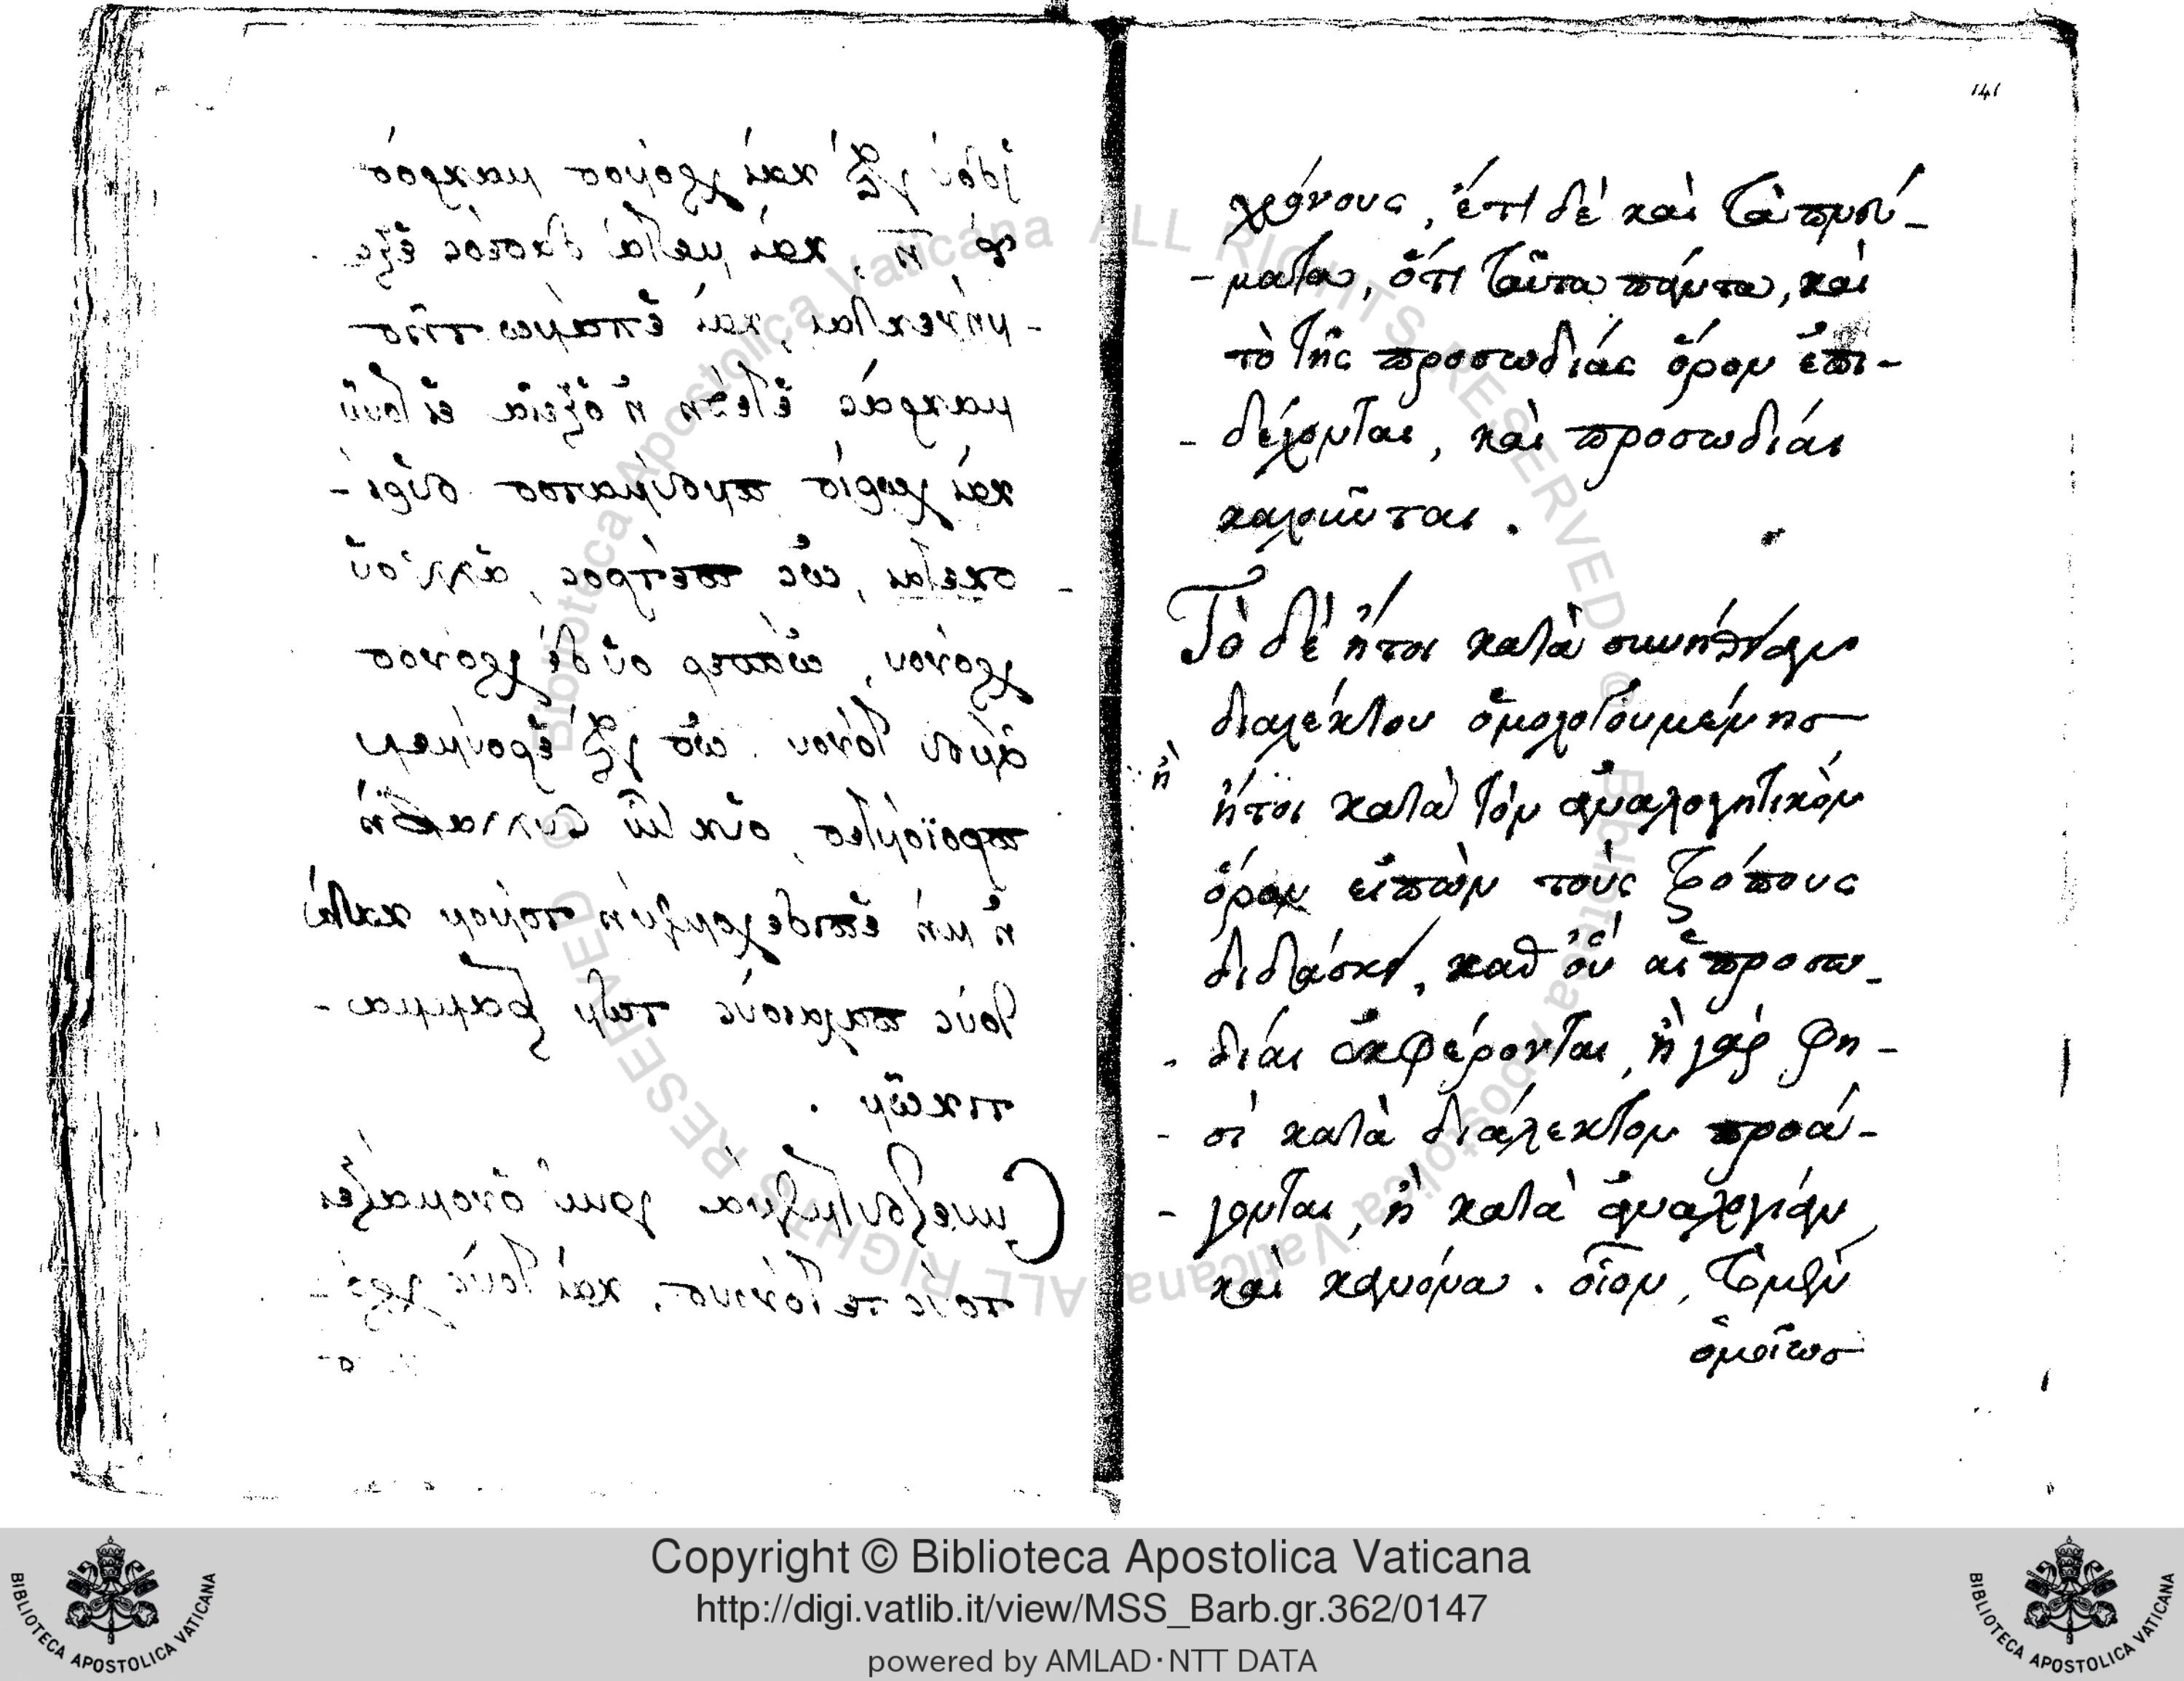 ἰδοὺ γὰρ καὶ χρόνος μακρὸς
η, καὶ μετὰ δασέος ἐξε
-νήνεκται, καὶ ἐπάνω τῆς
μακρᾶς ἐτέθη ἡ ὀξεῖα
καὶ χωρὶς πνεύματος εὑρί-
-σκεται, ὡς πέτρος, ἀλλ' οὐ
χρόνου, ὥσπερ οὐδὲ χρόνος
ἄνευ τόνου. ὡς γὰρ ἐροῦμεν
προϊόντες, οὐκ συλλαβὴ
ἡ μὴ ἐπιδεχομένη τόνον κατὰ
τοὺς παλαιοὺς τῶν γραμμα-
τικῶν.
ὀνομάζει
τούς τε τόνους, καὶ τοὺς χρό-
141
χρόνους, ἔτι δὲ καὶ τὰ πνεύ-
-ματα, ὅτι ταῦτα πάντα, καὶ
τὸ τῆς προσωδίας ὅρον ἐπι-
-δέχονται, καὶ προσωδίαι
καλοῦνται.
Τὸ δὲ ἤτοι κατὰ συνήθειαν
διαλέκτου ὁμολογουμένης
ἢ
ἤτοι κατὰ τὸν ἀναλογητικὸν
ὅρον εἰπὼν τοὺς τρόπους
διδάσκει, καθ' οὓς αἱ προσω-
-δίαι ἐκφέρονται, ἢ γάρ φη-
-σι κατὰ διάλεκτον προά-
-γονται, ἢ κατὰ ἀναλογίαν
καὶ κανόνα. οἷον,
ὁμοίως